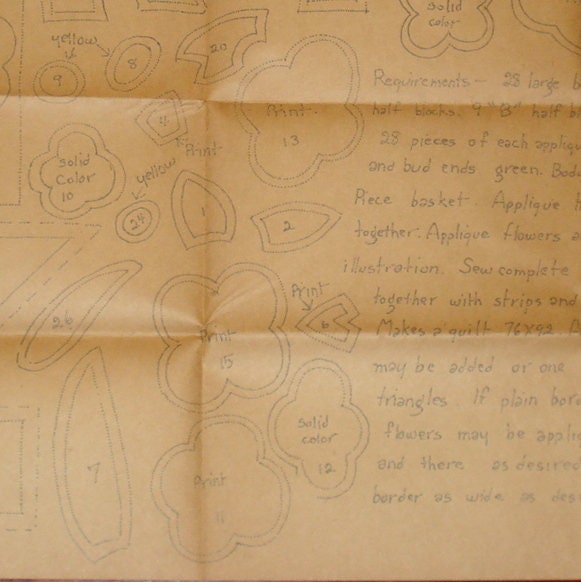 solid
color
yellow
8
9
20
Print
13
Print
solid
Color
10
yellow
24
1
2
26
Print
15
Print
6
solid
color
12
7
Print
11
Requirements - 28 large b
half blocks. 9 "B" half bl
28 pieces of each appliqu
and bud ends green. Bod
Piece basket. Applique h
together. Applique flowers a
illustration. Sew complete
together with strips and
Makes a quilt 76x92. A
may be added or one
triangles. If plain bord
flowers may be appli
and there as desired
border as wide as des